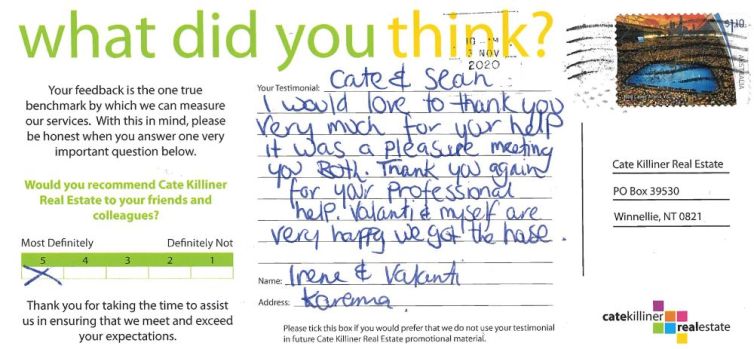 what did you think?
3 NOV
2020
$1.10
AUSTRALIA
Your feedback is the one true
benchmark by which we can measure
our services. With this in mind, please
be honest when you answer one very
important question below.
Would you recommend Cate Killiner
Real Estate to your friends and
colleagues?
Most Definitely Definitely Not
5 4 3 2 1
Thank you for taking the time to assist
us in ensuring that we meet and exceed
your expectations.
Your Testimonial: Cate & Sean
I would love to thank you
very much for your help
it was a pleasure meeting
you Both. Thank you again
for your Professional
help. Valanti & myself are
very happy we got the hose.
Name: Irene & Valanti
Address: Karama
Please tick this box if you would prefer that we do not use your testimonial
in future Cate Killiner Real Estate promotional material.
Cate Killiner Real Estate
PO Box 39530
Winnellie, NT 0821
catekilliner
realestate